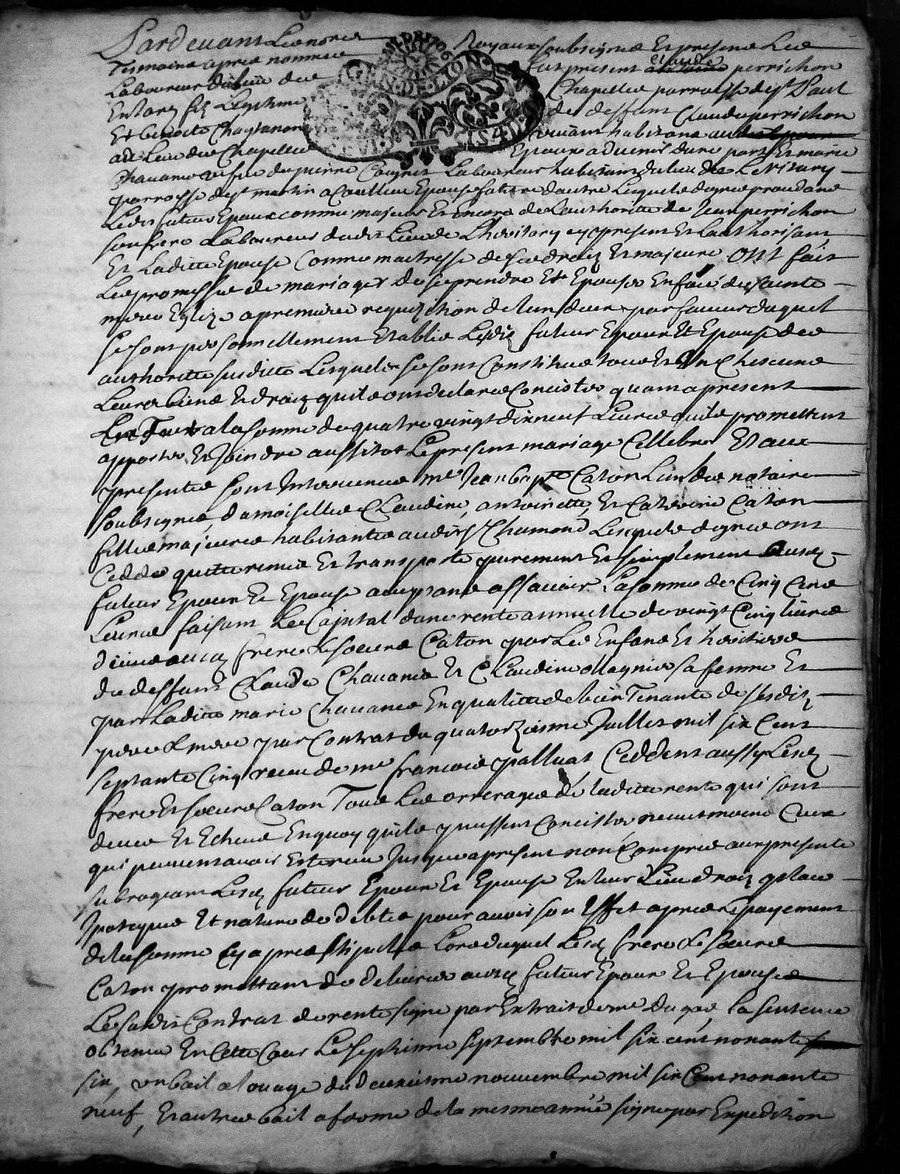 Pardevant Le notre Royaux soubsigné Et presens Les
Tesmoins apres nommes fut present claude perrichon
Laboureur du lieu du Chapellier parroisse de st Paul
En Jarez fils Legitime des deffunt Claude perrichon
Et Benoite Chaptanon vivant habitans au
dit Lieu du Chapellier Epoux advenir dune part Et marie
Chavane vefve de pierre Laboureur habitans du lieu de
parroisse de st martin a Coallieu Epouse future dautre Lesquels de gré procedans
Ledit futur Epoux comme majeur Et Encore de Lauthorité de Jean perrichon
son frere Laboureur dudit Lieu de present Et Lauthorisant
Et Laditte Epouse Comme maitresse de ses droits Et majeure ont fait
Les promesses de mariage de se prendre Et Epouser En face de sainte
mere Eglize a premiere requisition de lun deux par faveur duquel
se sont personnellement Etablis Lesdits futurs Epoux Et Epouse de
authorité susditte Lesquels se sont Constitué tous Et Un Chescuns
Leurs biens Et droits quils ont declaré Consister quant a present
a la somme de quatre vingt dix neuf Livres quils promettent
apporter Et Joindre aussitot Le present mariage Cellebré Et aux
presentes sont Intervenus me Jean bapte Caton Lun des notaires
soubsignés damoiselles Claudine, antoinette Et Caterine Caton
filles majeures habitantes audit st Chamond Lesquels de gré ont
Ceddé quitté remis Et transporté purement Et simplement ausdits
futurs Epoux Et Epouse acceptans assavoir La somme de Cinq Cens
Livres faisant Le Capital dune rente annuelle de vingt Cinq livres
deue ausdits frere Et soeurs Caton par Les Enfans Et heritiers
du deffunt Claude Chavane Et Claudine ollagnier sa femme Et
par Laditte marie Chavane En qualité de bien Tenante de sesdits
pere Et mere par Contrat du quatorzieme Juillet mil six Cent
septante Cinq receu de me francois palluat Ceddent aussy Lesdits
frere Et soeurs Caton Tous Les arrerages de laditte rente qui sont
deus Et Echeus En quoy quils puissent Consister neantmoins Ceux
qui peuvent avoir Esté receu Jusques a present non Compris aux presentes
subrogeant Lesdits futurs Epoux Et Epouse En leur Lieu droit place
Ipoteque Et nature de debte pour avoir son Effet apres Le payement
de la somme Cy apres stipulée Lors duquel Lesdits frere Et soeurs
Caton promettent de delivrer ausdits futurs Epoux Et Epouse
Le susdit Contrat de rente signé par Extrait de me du gas, la sentence
obtenue En Cette Cour Le septieme septembre mil six cent nonante
six, un bail a louage du deuxieme novembre mil six Cent nonante
neuf, Et autre bail a ferme de la mesme année signé par Expedition